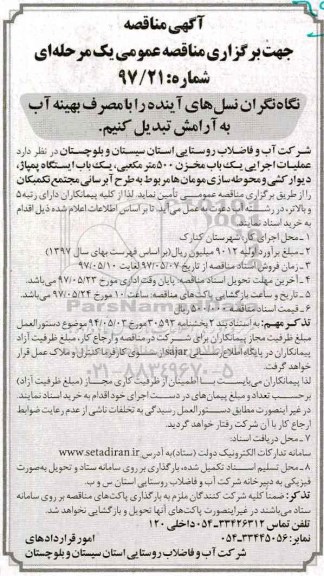 آگهی مناقصه
جهت برگزاری مناقصه عمومی یک مرحله‌ای
شماره: ۹۷/۲۱
نگاه نگران نسل‌های آینده را با مصرف بهینه آب
به آرامش تبدیل کنیم.
شرکت آب و فاضلاب روستایی استان سیستان و بلوچستان در نظر دارد
عملیات اجرایی یک باب مخزن ۵۰۰ متر مکعبی، یک باب ایستگاه پمپاژ،
دیوارکشی و محوطه‌سازی مومان‌ها مربوط به طرح آبرسانی مجتمع تکمیکان
را از طریق برگزاری مناقصه عمومی تأمین نماید. لذا از کلیه پیمانکاران دارای رتبه ۵
و بالاتر، در رشته آب دعوت به عمل می‌آید، تا بر اساس اطلاعات اعلام شده ذیل اقدام
به خرید اسناد نمایند.
۱- محل اجرای کار: شهرستان کنارک
۲- مبلغ برآورد اولیه ۹۰۱۲ میلیون ریال (بر اساس فهرست بهای سال ۱۳۹۷)
۳- زمان فروش اسناد مناقصه از تاریخ ۹۷/۰۵/۰۷ لغایت ۹۷/۰۵/۱۰
۴- آخرین مهلت تحویل اسناد مناقصه: پایان وقت اداری مورخ ۹۷/۰۵/۲۳ می‌باشد.
۵- تاریخ و ساعت بازگشایی پاکت‌های مناقصه: ساعت ۱۰ مورخ ۹۷/۰۵/۲۴ می‌باشد.
۶- قیمت اسناد مناقصه: ریال
تذکر مهم: به استناد بند ۲ بخشنامه ۳۰۵۹۲ مورخ ۹۴/۰۵/۰۳ موضوع دستورالعمل
ظرفیت مجاز پیمانکاران برای شرکت در مناقصه و ارجاع کار، مبلغ ظرفیت آزاد
پیمانکاران در پایگاه اطلاع رسانی sajar از سوی کارفرما کنترل و ملاک عمل قرار
خواهد گرفت.
لذا پیمانکاران می‌بایست با اطمینان از ظرفیت کاری مجاز (مبلغ ظرفیت آزاد)
برحسب تعداد و مبلغ پیمان‌های در دست اجرای خود اقدام به خرید اسناد نمایند.
در غیر اینصورت مطابق دستورالعمل رسیدگی به تخلفات ناشی از عدم رعایت ضوابط
ارجاع کار با آن شرکت رفتار خواهد گردید.
۷- محل دریافت اسناد:
سامانه تدارکات الکترونیک دولت (ستاد) به آدرس www.setadiran.ir
۸- محل تسلیم اسناد تکمیل شده، بارگذاری بر روی سامانه ستاد و تحویل به صورت
فیزیکی به دبیرخانه شرکت آب و فاضلاب روستایی استان س و ب.
تذکر: ضمناً کلیه شرکت کنندگان ملزم به بارگذاری پاکت‌های مناقصه بر روی سامانه
ستاد می‌باشند در غیر اینصورت پاکت‌های آنها تحویل و بازگشایی نخواهد شد.
تلفن تماس ۳۳۴۲۶۳۱۲-۰۵۴ داخلی ۱۲۰
نمابر: ۳۳۴۴۵۰۵۶-۰۵۴ امور قراردادهای
شرکت آب و فاضلاب روستایی استان سیستان و بلوچستان
ParsNamadData
۰۲۱-۸۸۳۴۹۶۷۰-۵